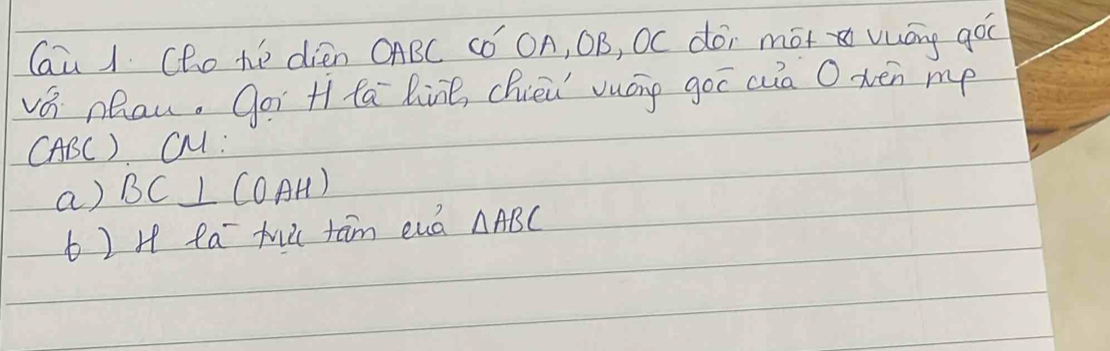 Câu 1. Cho tứ diện OABC có OA, OB, OC đôi một vuông góc
với nhau. Gọi H là hình chiếu vuông góc của O trên mp
(ABC). CM:
a) BC ⊥ (OAH)
b) H là trực tâm của ΔABC